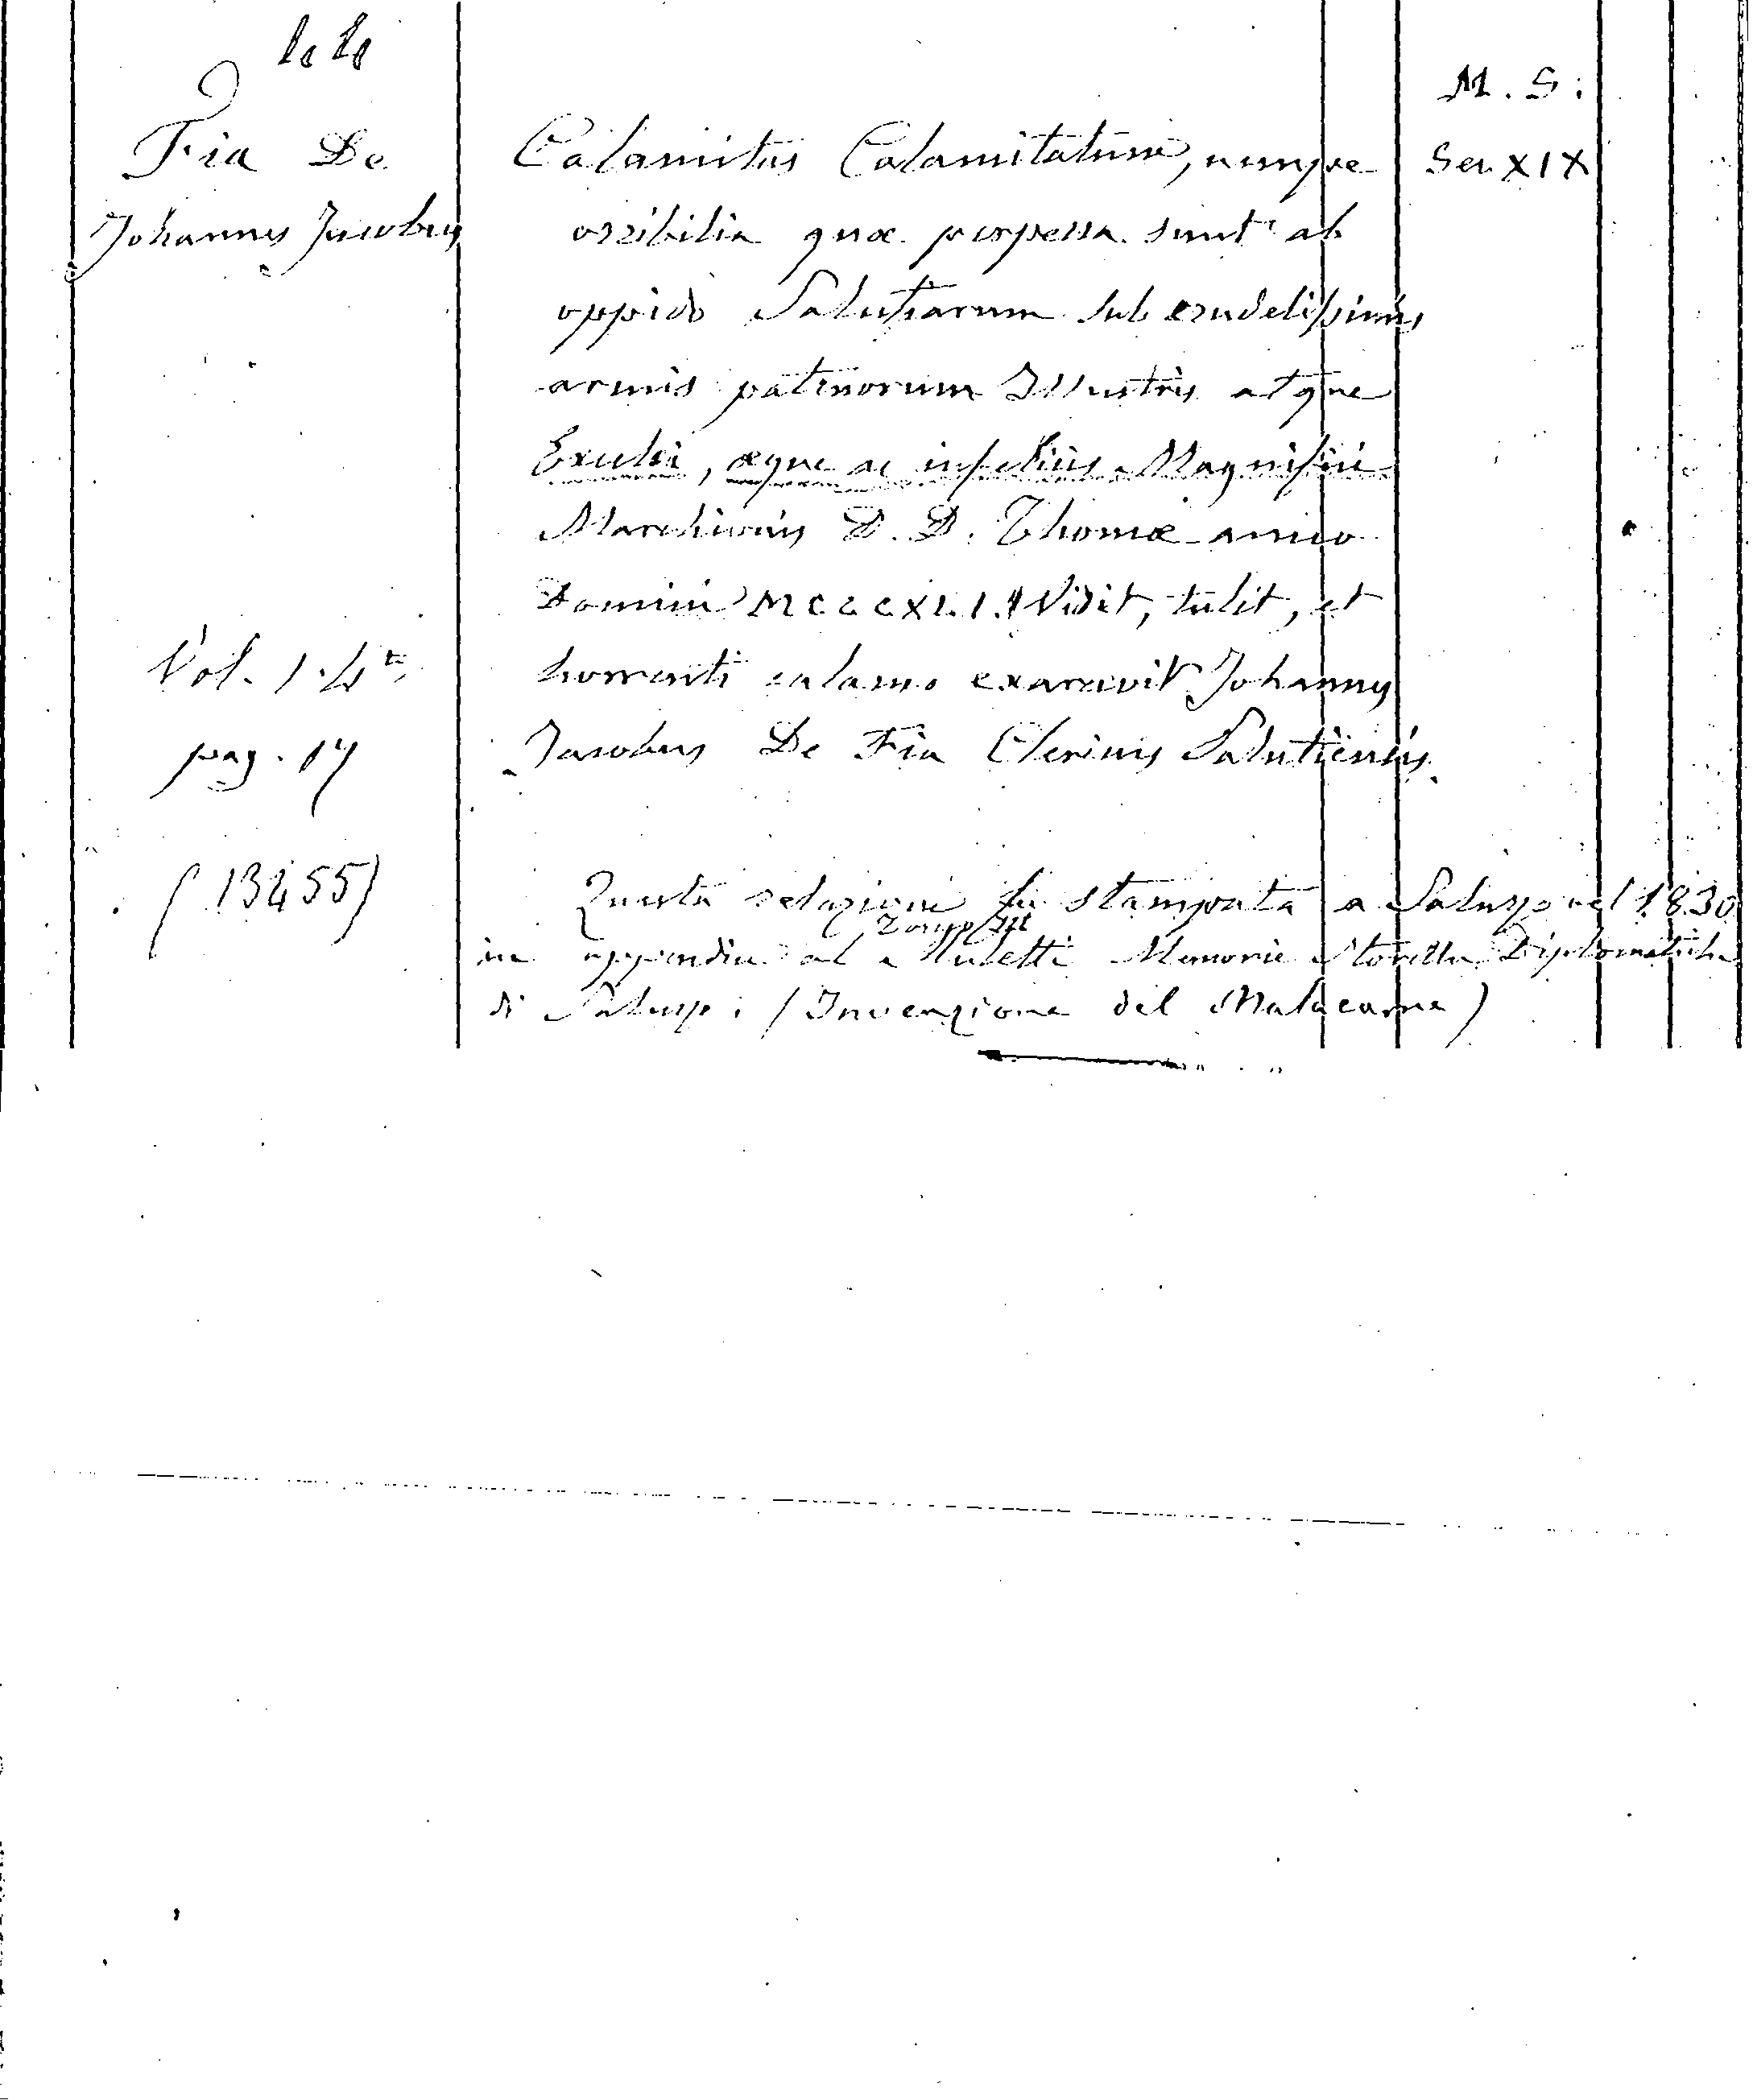 Fia De
Johannes Jacobus
Vol. 1. 4to
pag. 17
(13455)
Calamitas Calamitatum, nempe
orribilia quæ perpessa sunt ab
oppido Salutiarum sub crudelissimis
armis patruorum Illustris atque
Exulis, æque ac infelicis Magnifici
Marchionis D. D. Thomæ anno
Domini MCCCXLI. Vidit, tulit, et
horrenti calamo exaravit Johannes
Jacobus De Fia Clericus Salutiensis.
Questa relazione fu stampata a Saluzzo nel 1830
in appendice al Muletti Memorie Storiche Diplomatiche
di Saluzzo: (Invenzione del Malacarne)
M. S:
Sec. XIX